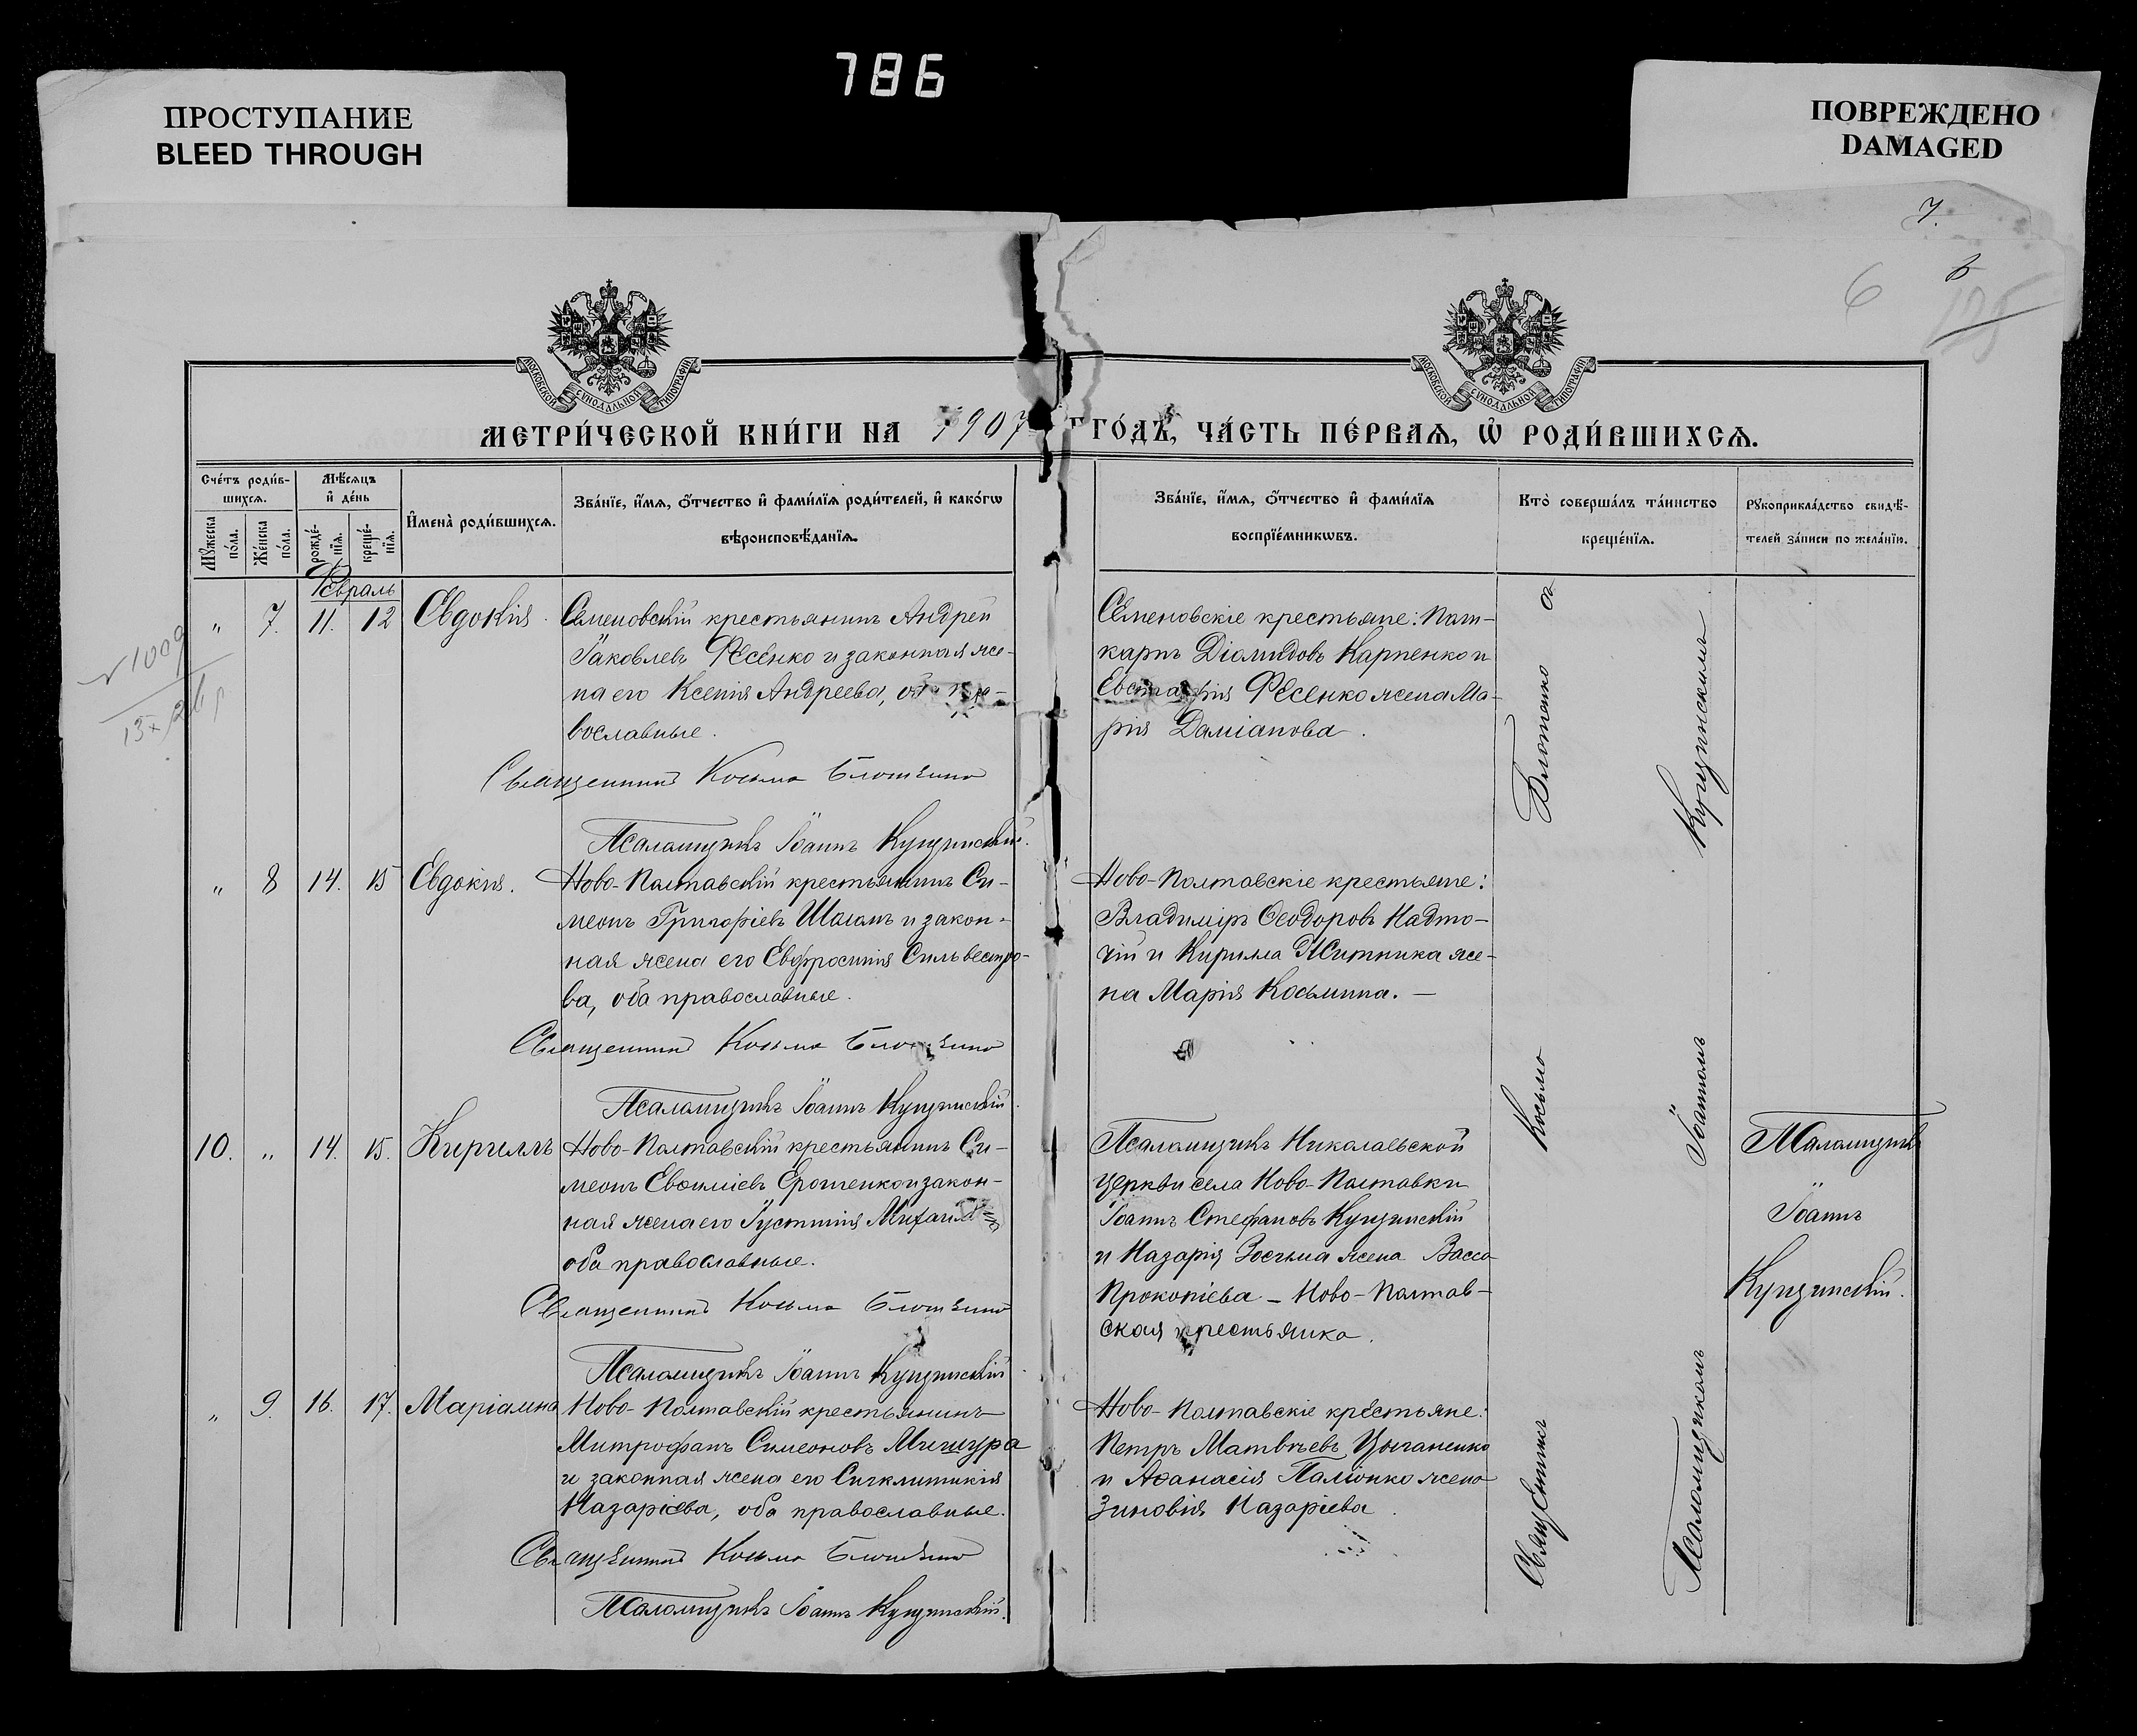 786
ПРОСТУПАНИЕ
BLEED THROUGH
ПОВРЕЖДЕНО
DAMAGED
7.
6
МОСКОВСКОЙ СѴНОДАЛЬНОЙ ТИПОГРАФІИ
МОСКОВСКОЙ СѴНОДАЛЬНОЙ ТИПОГРАФІИ
МЕТРИ́ЧЕСКОЙ КНИ́ГИ НА 1907 ГО́ДЪ, ЧА́СТЬ ПЕ́РВАѦ, Ѡ҆ РОДИ́ВШИХСѦ.
Сче́тъ роди́в-
шихсѧ.
Мѣ́сѧцъ
и҆ де́нь
Мꙋ́жеска по́ла.
Же́нска по́ла.
рожде́-
нїѧ.
креще́-
нїѧ.
И҆мена̀ роди́вшихсѧ.
Зва́нїе, и҆́мѧ, ѻ҆́тчество и҆ фами́лїѧ роди́телей, и҆ како́гѡ
вѣроисповѣ́данїѧ.
Зва́нїе, и҆́мѧ, ѻ҆́тчество и҆ фами́лїѧ
воспрїе́мникѡвъ.
Кто̀ соверша́лъ та́инство
креще́нїѧ.
Рꙋкоприкла́дство свидѣ́-
телей за́писи по жела́нїю.
Февраль
" 7. 11. 12 Евдокія.
Семеновскій крестьянинъ Андрей
Іаковлевъ Фесенко и законная же-
на его Ксенія Андреева, оба пра-
вославные.
Священникъ Косьма
Псаломщикъ Іоаннъ Кущинскій.
Семеновскіе крестьяне:
карпъ Діомидовъ Карпенко и
Евстафія Фесенко жена Ма-
рія Даміанова.
" 8 14. 15 Евдокія.
Ново-Полтавскій крестьянинъ Си-
меонъ Григоріевъ и закон-
ная жена его Евфросинія Сильвестро-
ва, оба православные.
Священникъ Косьма
Псаломщикъ Іоаннъ Кущинскій.
Ново-Полтавскіе крестьяне:
Владиміръ Ѳеодоровъ Надто-
чій и Кирилла Житника же-
на Марія Косьмина. —
10. " 14. 15. Кириллъ
Ново-Полтавскій крестьянинъ Си-
меонъ Евѳиміевъ Ерошенко и закон-
ная жена его Іустинія
оба православные.
Священникъ Косьма
Псаломщикъ Іоаннъ Кущинскій
Псаломщикъ Николаевской
церкви села Ново-Полтавки
Іоаннъ Стефановъ Кущинскій
и Назарія жена Васса
Прокопіева — Ново-Полтав-
ская крестьянка.
Псаломщикъ
Іоаннъ
Кущинскій.
" 9. 16. 17. Маріамна
Ново-Полтавскій крестьянинъ
Митрофанъ Симеоновъ Мишура
и законная жена его Сигклитикія
Назаріева, оба православные.
Священникъ Косьма
Псаломщикъ Іоаннъ Кущинскій.
Ново-Полтавскіе крестьяне:
Петръ Матвѣевъ Цыганенко
и Аѳанасія жена
Зиновія Назаріева.
Священникъ Косьма
Псаломщикомъ Іоанномъ Кущинскимъ